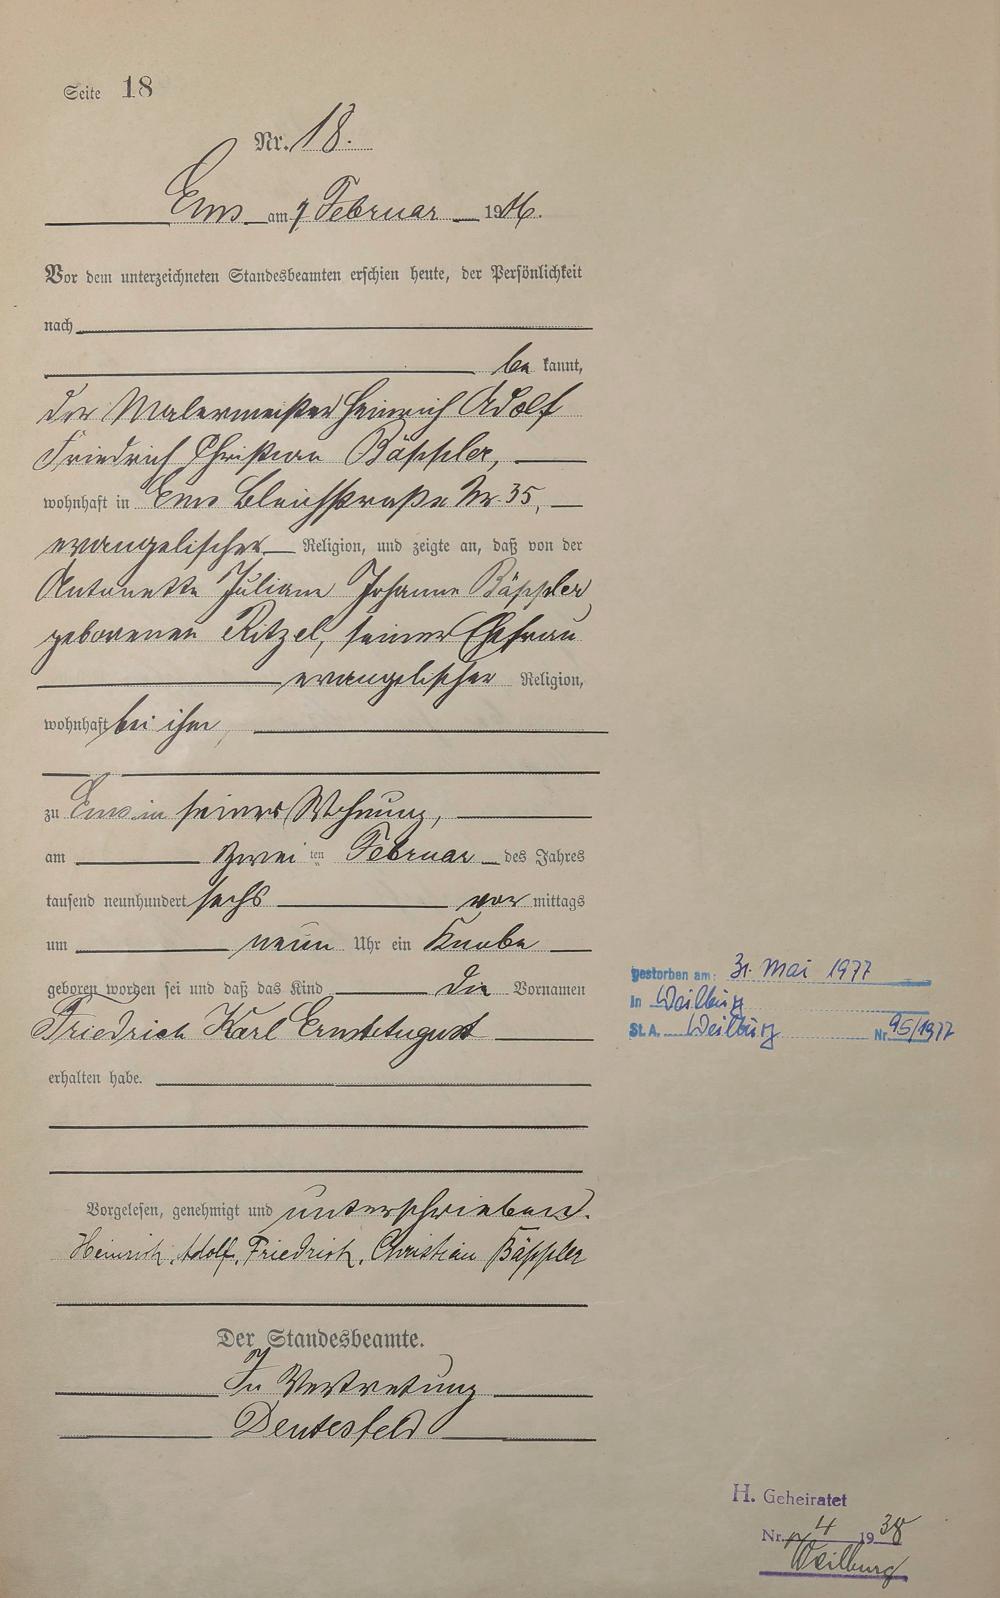 Seite 18
Nr. 18.
Ems am 7 Februar 1906.
Vor dem unterzeichneten Standesbeamten erschien heute, der Persönlichkeit
nach
be kannt,
der Malermeister Heinrich Adolf
Friedrich Christian Bäppler,
wohnhaft in Ems Bleichstraße Nr. 35,
evangelischer Religion, und zeigte an, daß von der
Antonette Juliane Johanne Bäppler,
geborenen Ritzel, seiner Ehefrau
evangelischer Religion,
wohnhaft bei ihm,
zu Ems in seiner Wohnung,
am zwei ten Februar des Jahres
tausend neunhundert sechs vor mittags
um neun Uhr ein Knabe
geboren worden sei und daß das Kind die Vornamen
Friedrich Karl Ernst August
erhalten habe.
gestorben am: 31. Mai 1977
in Weilburg
St.A. Weilburg Nr. 95/1977
Vorgelesen, genehmigt und unterschrieben.
Heinrich, Adolf, Friedrich, Christian Bäppler
Der Standesbeamte.
In Vertretung
H. Geheiratet
Nr. 4 1938
Weilburg